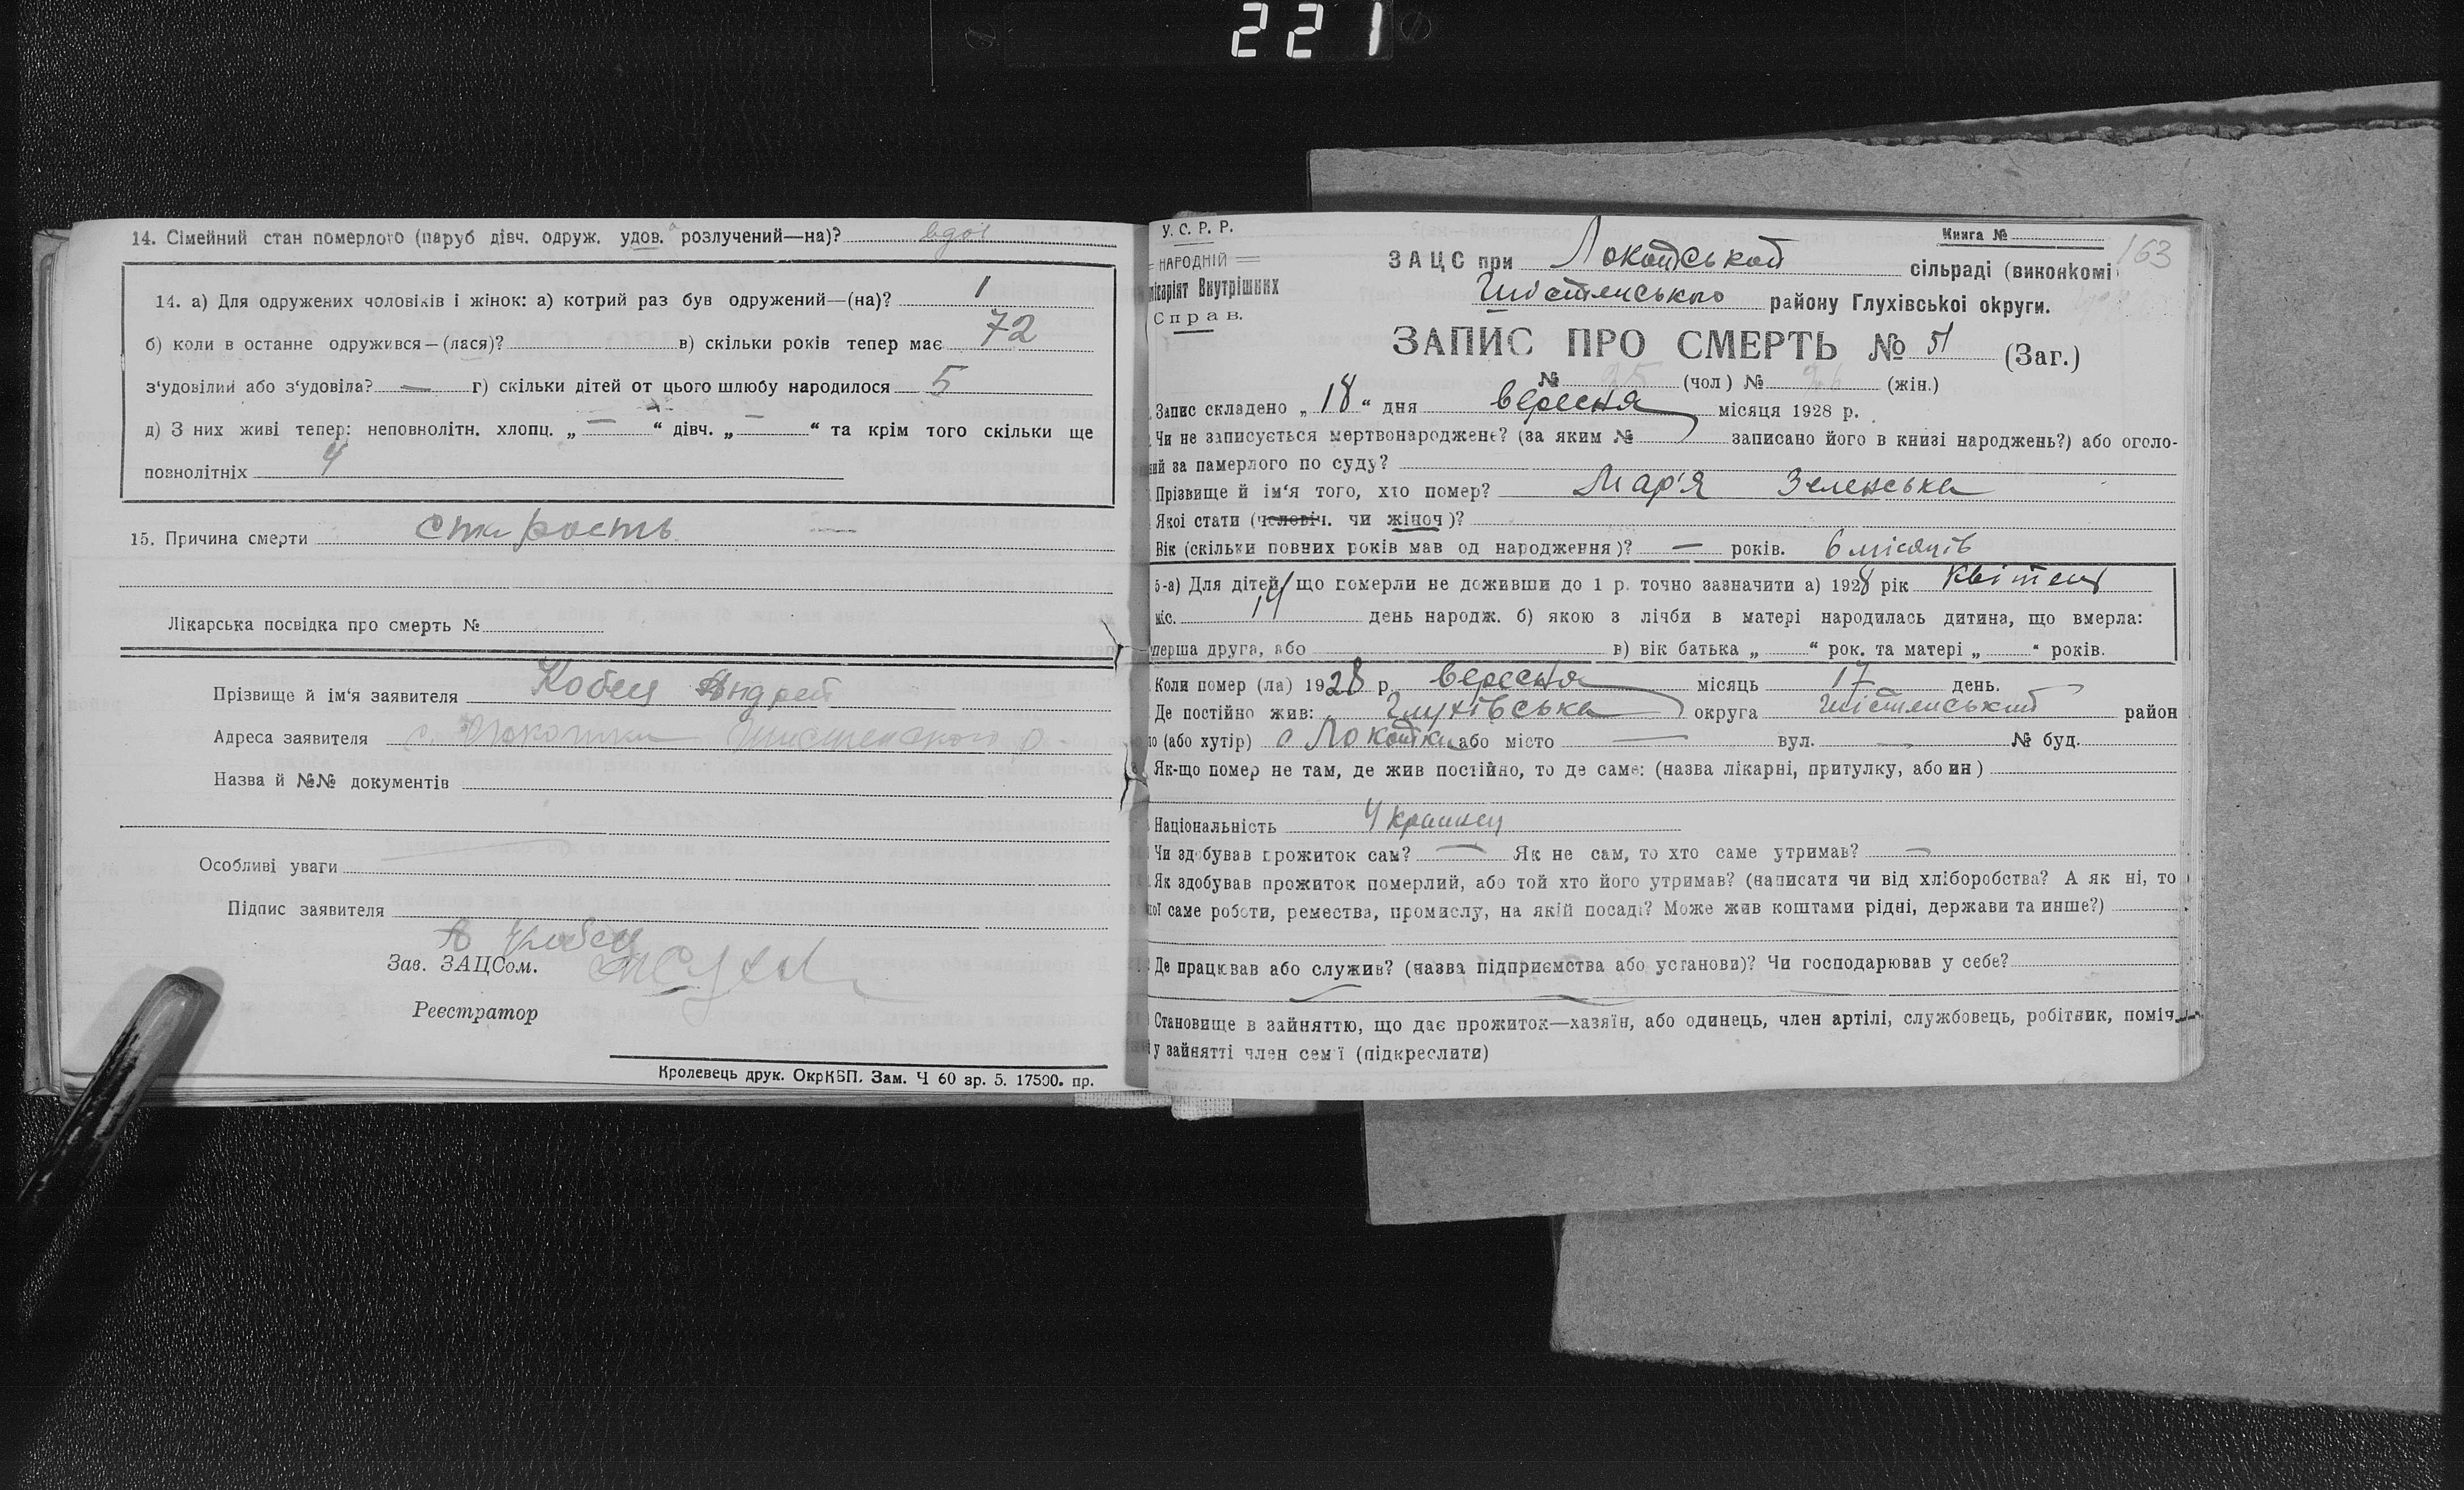 221
14. Сімейний стан померлого (паруб дівч. одруж. удов. розлучений—на)? вдов
14. а) Для одружених чоловіків і жінок: а) котрий раз був одружений—(на)? 1
б) коли в останне одружився—(лася)? в) скільки років тепер має 72
з'удовілий або з'удовіла? — г) скільки дітей от цього шлюбу народилося 5
д) З них живі тепер: неповнолітн. хлопц. „ — “ дівч. „ — “ та крім того скільки ще
повнолітніх 4
15. Причина смерти старость
Лікарська посвідка про смерть №
Прізвище й ім'я заявителя Кобец Андрей
Адреса заявителя с. Локотки
Назва й №№ документів
Особливі уваги
Підпис заявителя
А Кобец
Зав. ЗАЦСом.
Реєстратор
Кролевець друк. ОкрКВП. Зам. Ч 60 зр. 5. 17500. пр.
У. С. Р. Р.
НАРОДНІЙ
місаріят Внутрішних
Справ.
Книга №
163
ЗАЦС при Локотській сільраді (виконкомі
Шістенського району Глухівської округи.
ЗАПИС ПРО СМЕРТЬ № 51 (Заг.)
№ 25 (чол) № 26 (жін.)
Запис складено „ 18 “ дня вересня місяця 1928 р.
Чи не записується мертвонароджене? (за яким № записано його в книзі народжень?) або оголо-
ний за памерлого по суду?
Прізвище й ім'я того, хто помер? Мар'я Зеленська
Якої стати (чоловіч. чи жіноч)?
Вік (скільки повних років мав од народження)? — років. 6 місяців
5-а) Для дітей, що померли не доживши до 1 р. точно зазначити а) 1928 рік квітень
міс. 14 день народж. б) якою з лічби в матері народилась дитина, що вмерла:
перша друга, або в) вік батька „ “ рок. та матері „ “ років.
Коли помер (ла) 1928 р. вересня місяць 17 день.
Де постійно жив: Глухівська округа Шістенський район
ло (або хутір) с Локотки або місто — вул. — № буд.
Як-що помер не там, де жив постійно, то де саме: (назва лікарні, притулку, або ин)
Національність Украинец
Чи здобував прожиток сам? — Як не сам, то хто саме утримав? —
Як здобував прожиток померлий, або той хто його утримав? (написати чи від хліборобства? А як ні, то
кої саме роботи, ремества, промислу, на якій посаді? Може жив коштами рідні, держави та инше?)
Де працював або служив? (назва підприємства або установи)? Чи господарював у себе?
Становище в зайняттю, що дає прожиток—хазяїн, або одинець, член артілі, службовець, робітник, поміч.
у зайнятті член сем'ї (підкреслити)